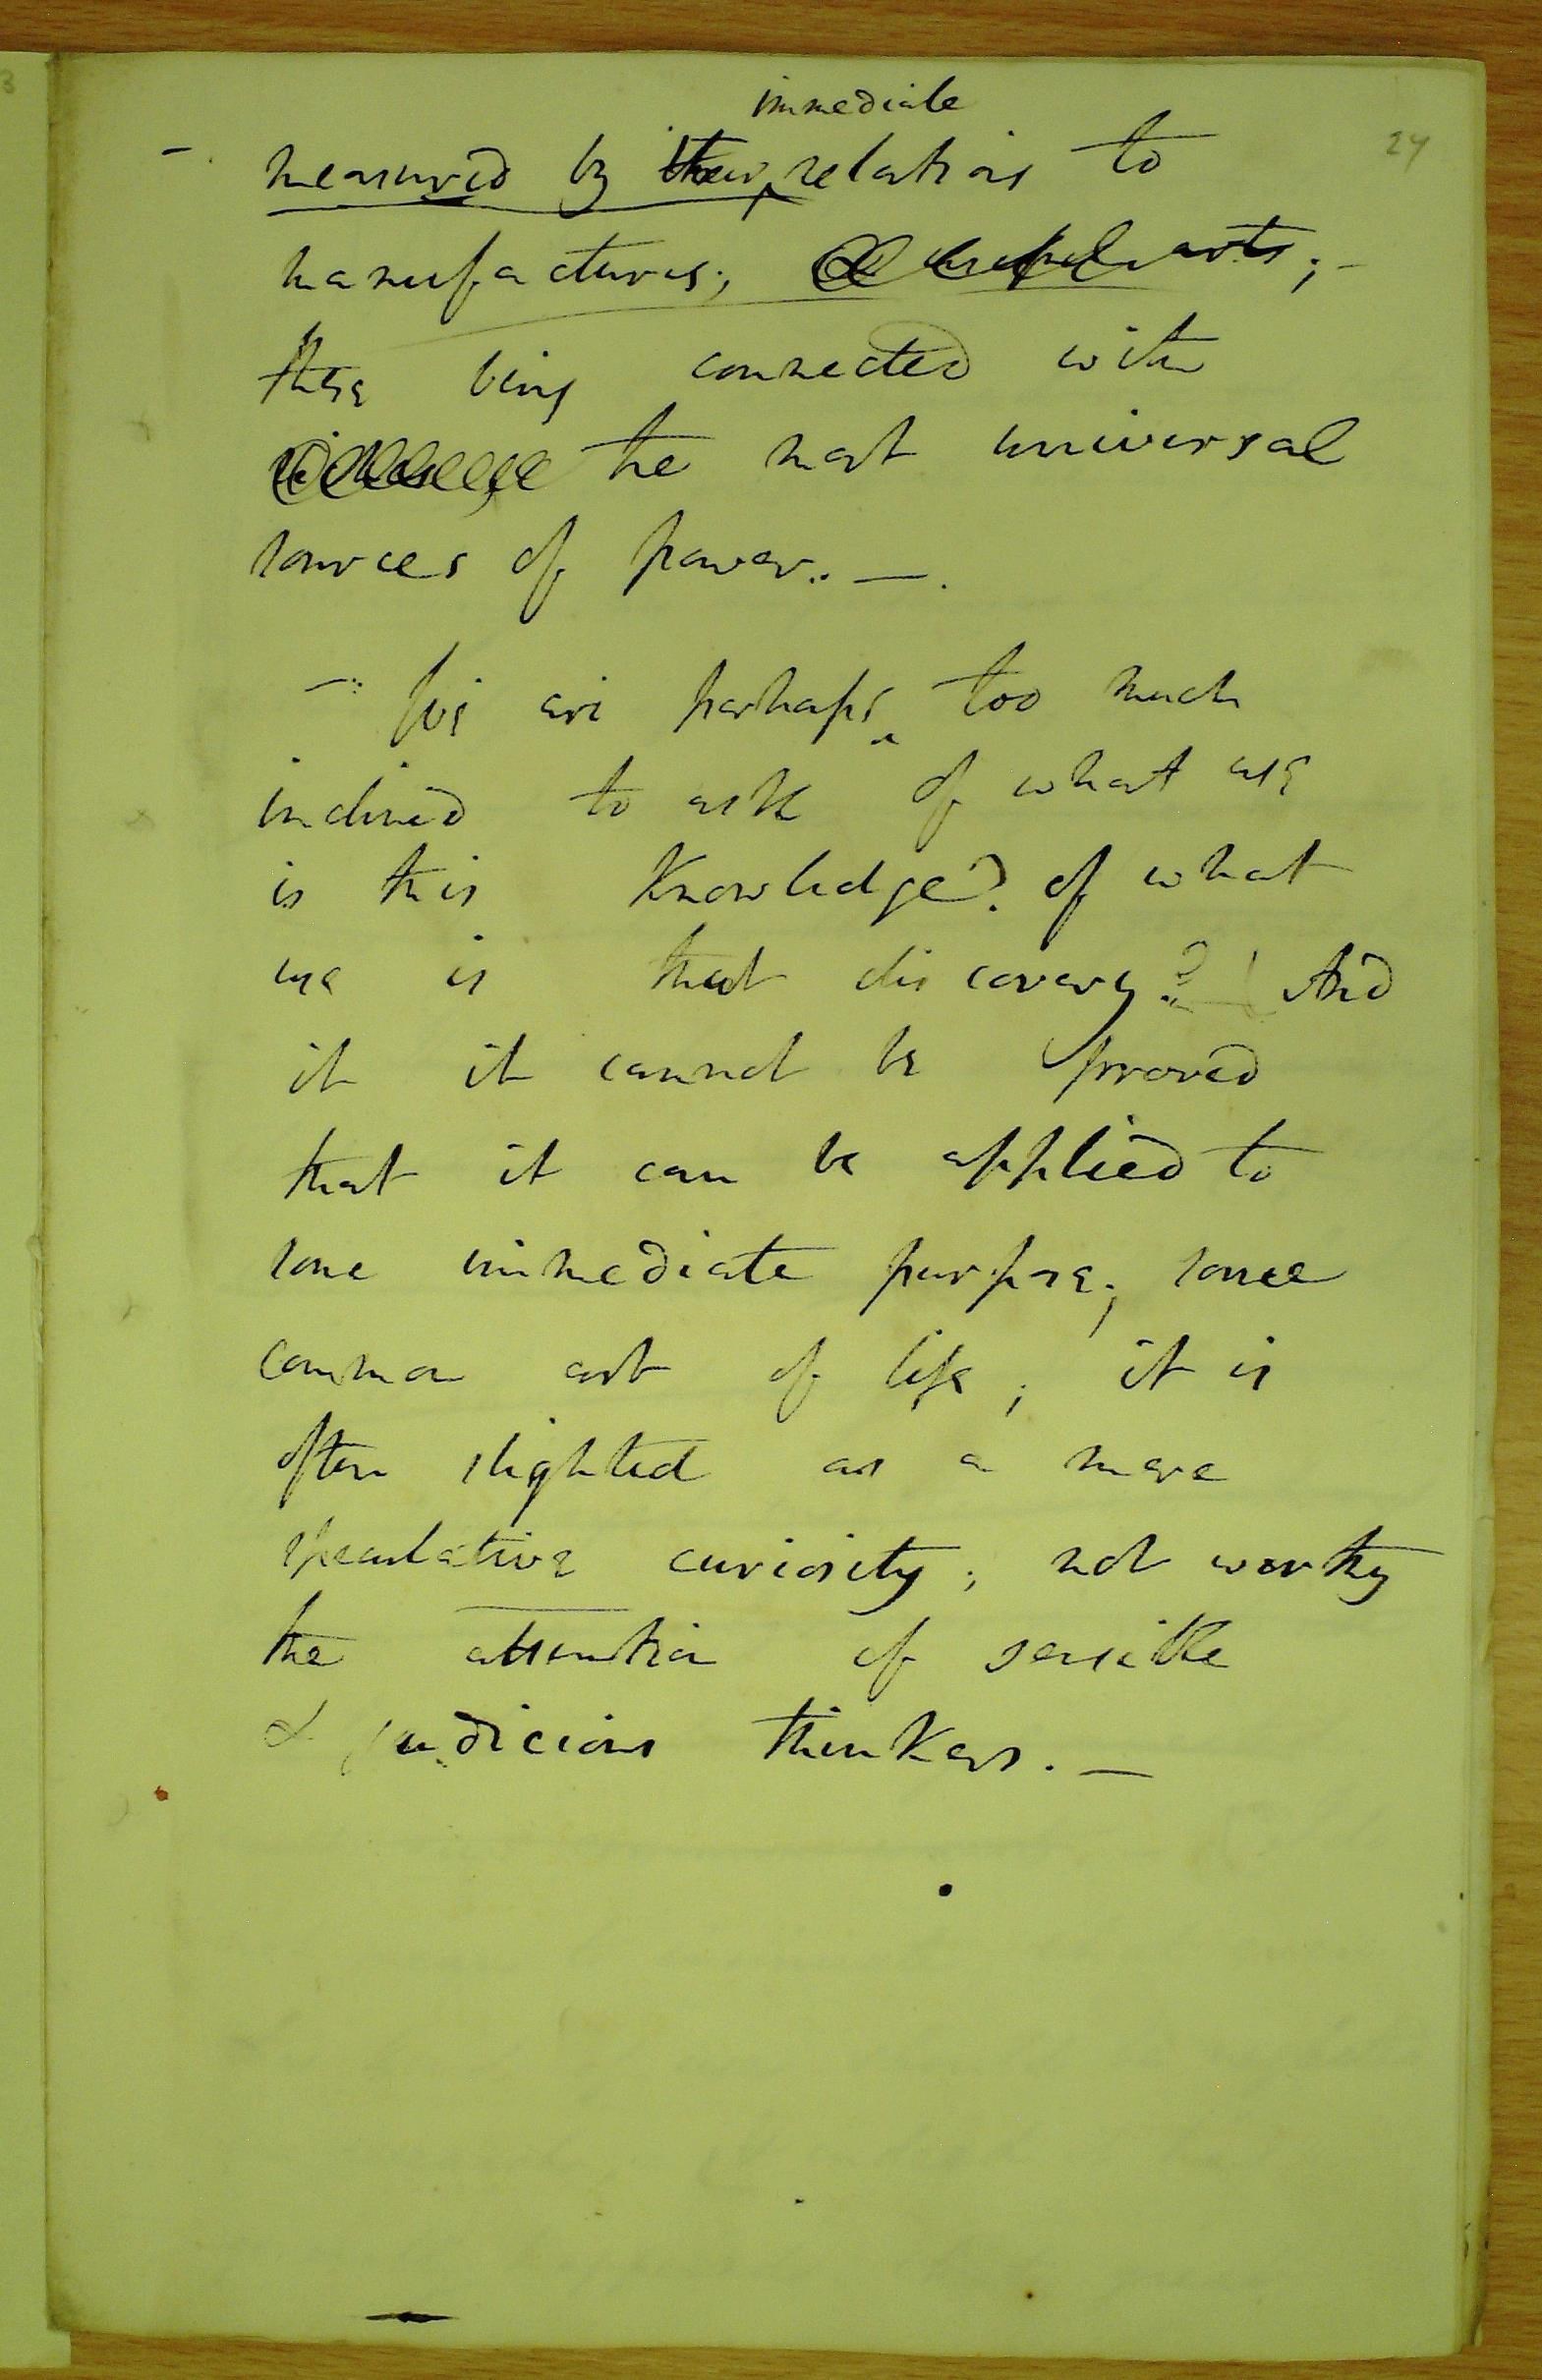 24
immediate
- measured by their relations to
manufactures; & useful arts; -
these being connected with
the most universal
sources of power. -
- We are perhaps too much
inclined to ask of what use
is this Knowledge? of what
use is that discovery? And
if it cannot be proved
that it can be applied to
some immediate purpose; some
common art of life; it is
often slighted as a mere
speculative curiosity; not worthy
the attention of sensible
& judicious thinkers. -